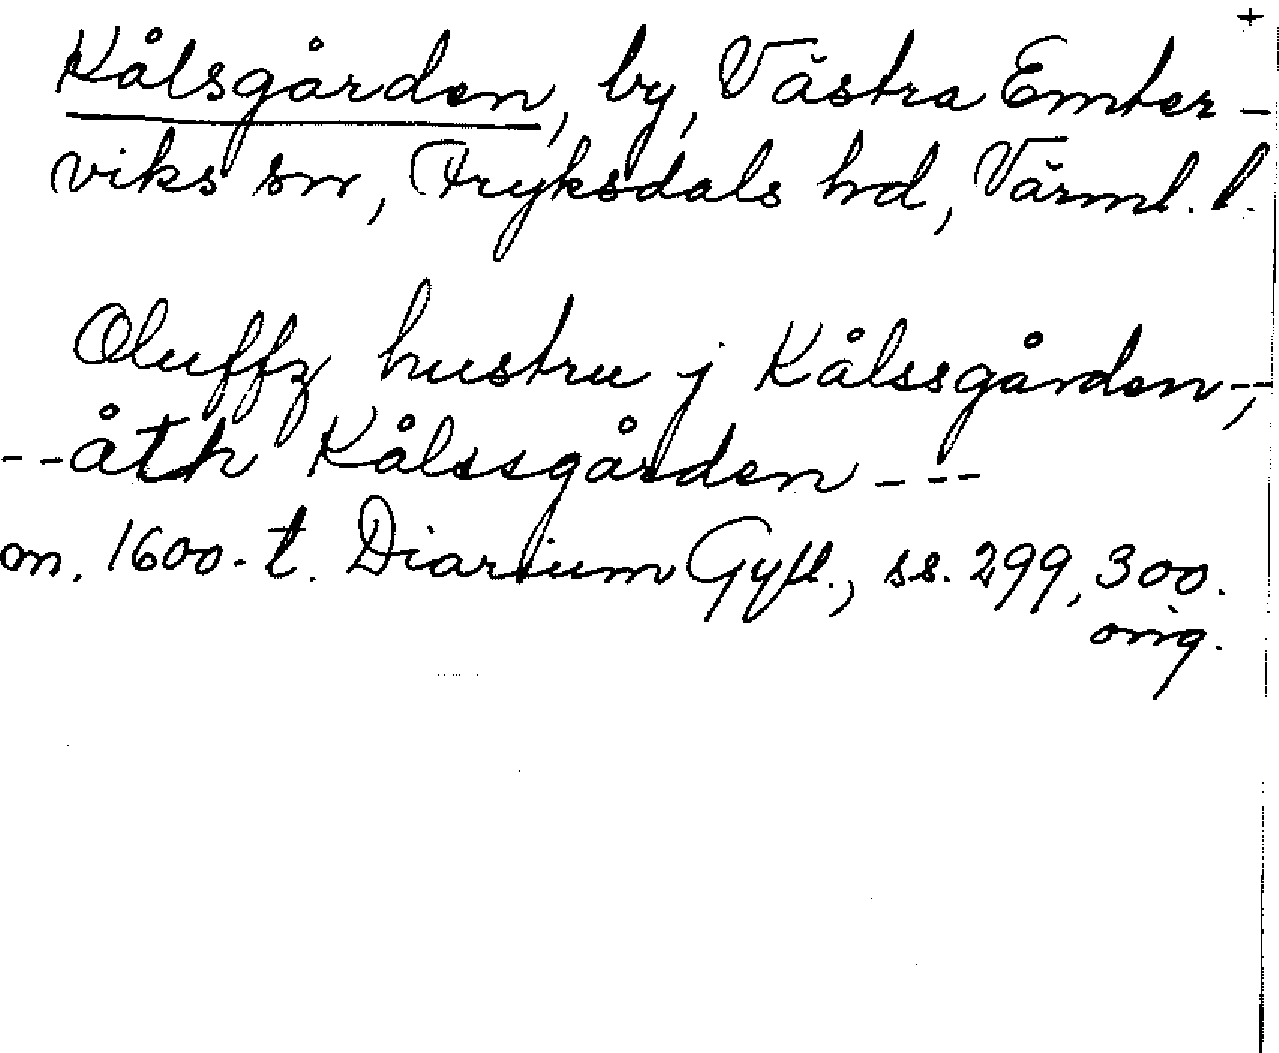 +
Kålsgården, by, Västra Emter-
viks sn, Fryksdals hd, Värml. l.
Oluffz hustru j Kålssgården--,
--åth Kålssgården ---
m. 1600-t. Diarium Gyll., ss. 299, 300.
orig.